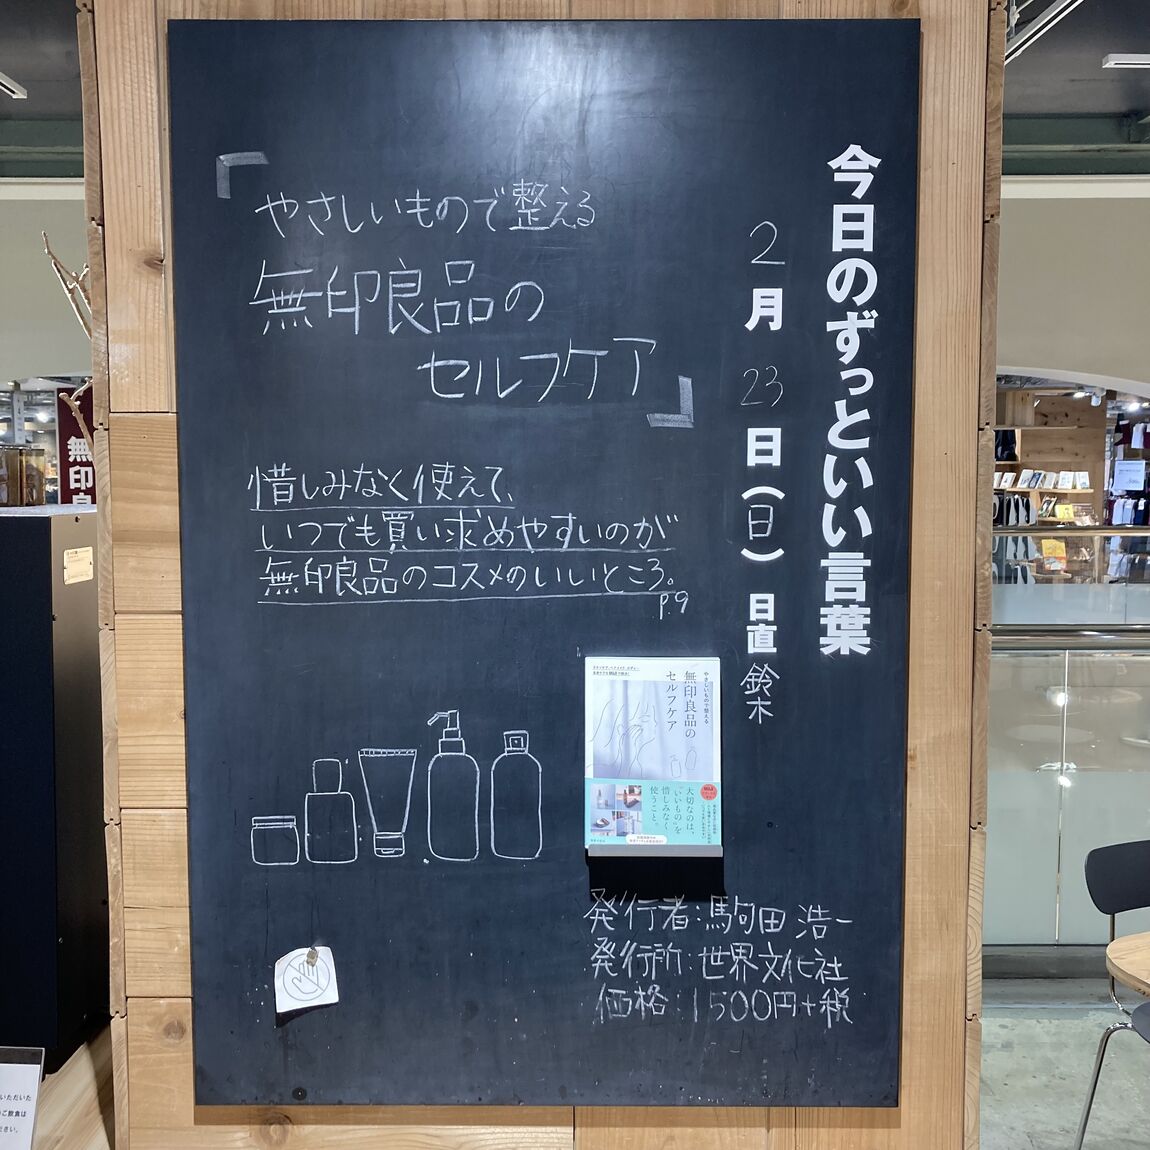 今日のずっといい言葉
2月23日(日) 日直 鈴木
「やさしいもので整える
無印良品の
セルフケア」
惜しみなく使えて、
いつでも買い求めやすいのが
無印良品のコスメのいいところ。
P.9
やさしいもので整える
無印良品の
セルフケア
大切なのは、
"いいもの"を
惜しみなく
使うこと。
発行者:駒田 浩一
発行所:世界文化社
価格:1500円+税
無印良
いただいた
ご飲食は
ださい。